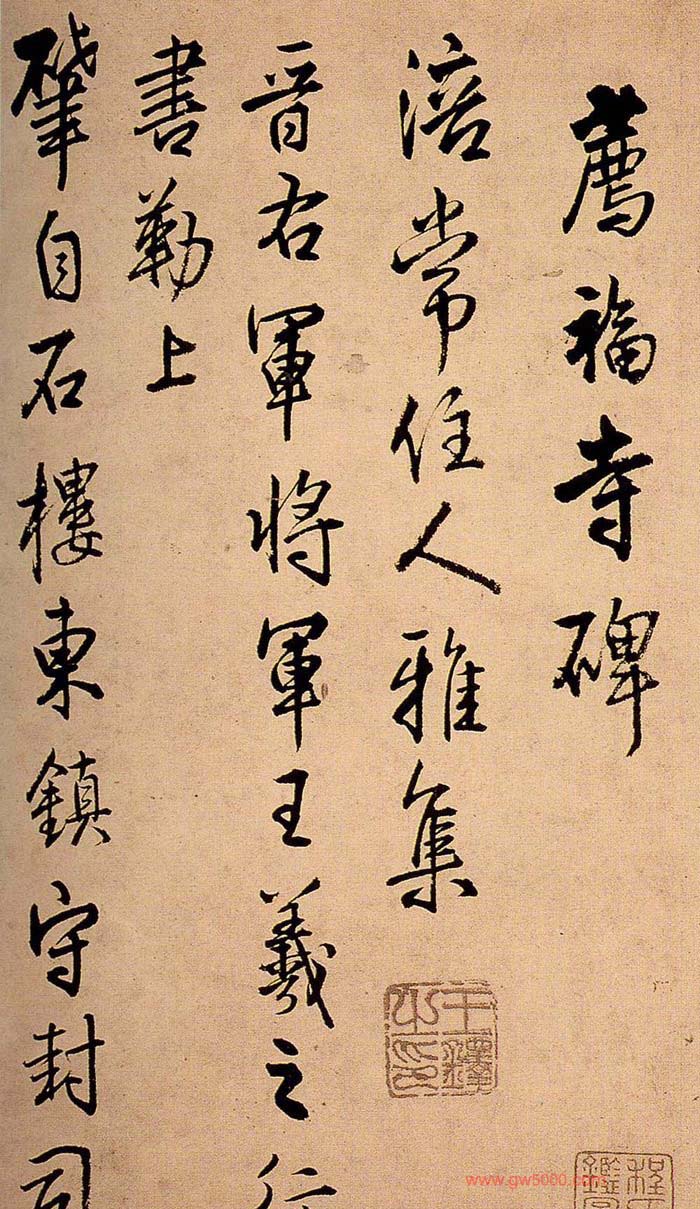 薦福寺碑
涪常住人雅集
晉右軍將軍王羲之行
書勒上
肇自石樓東鎮守封司
王鐸之印
www.gw5000.com